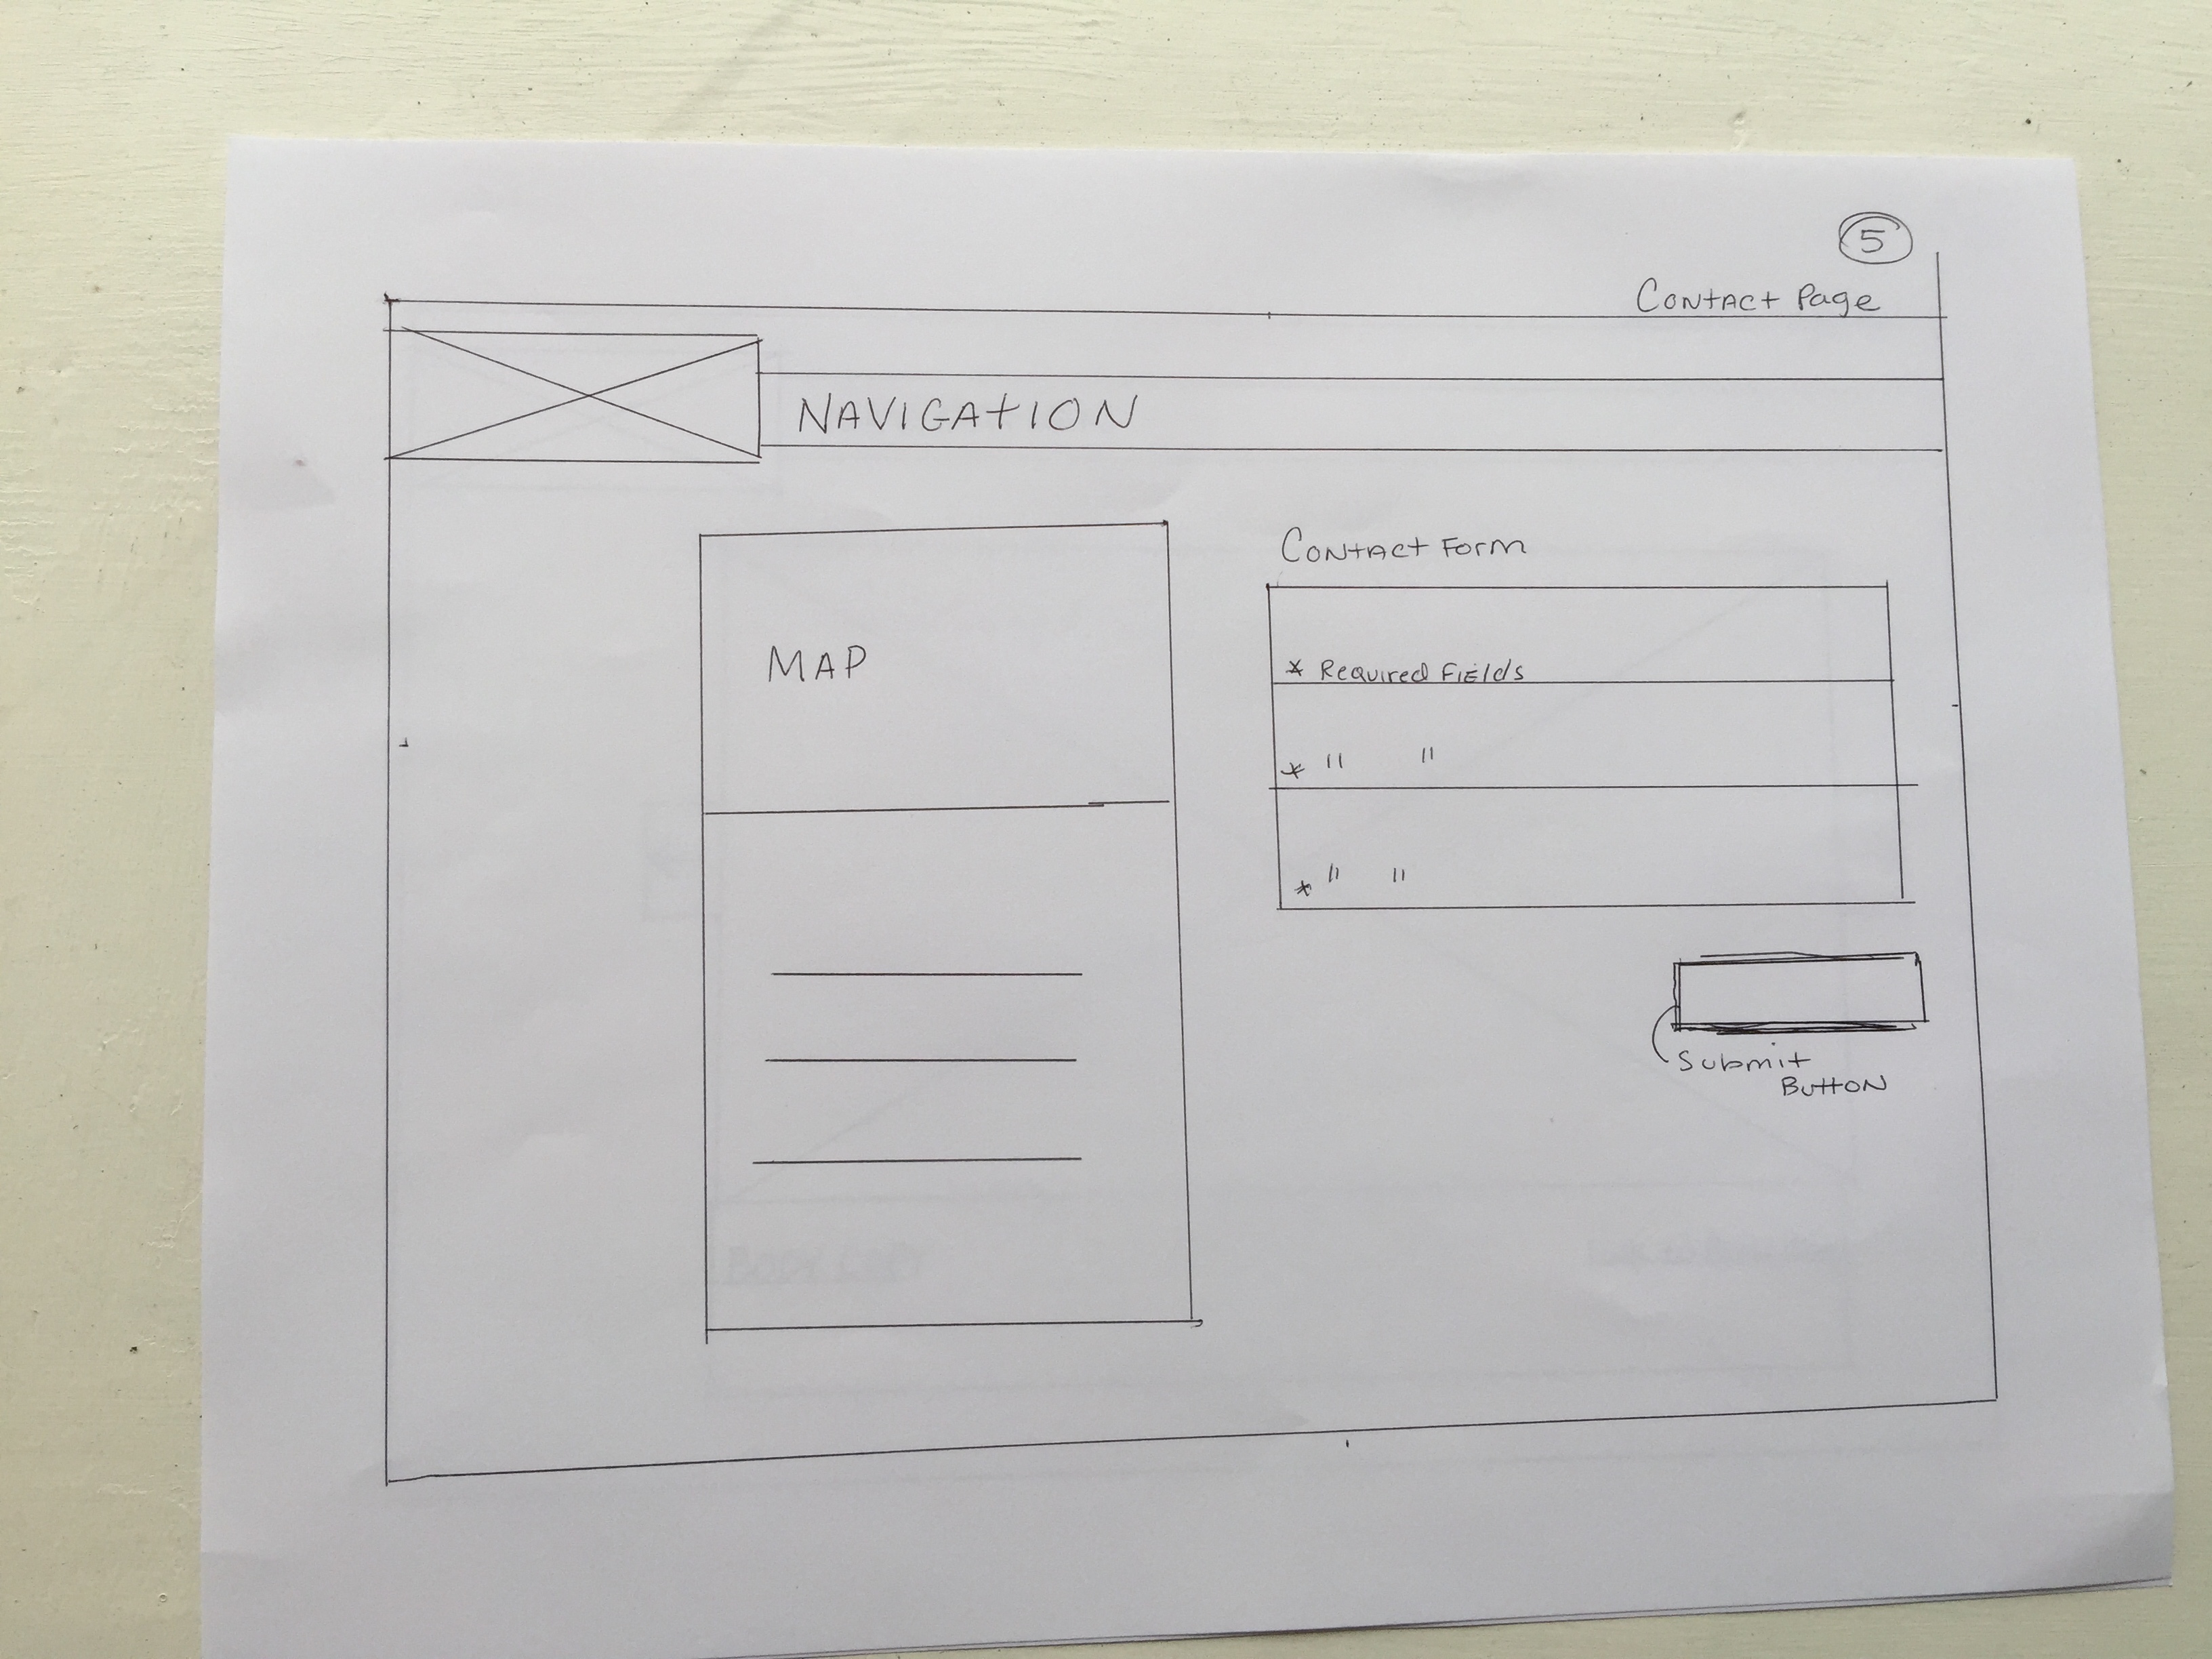 5
Contact Page
NAVIGATION
Contact Form
MAP
* Required Fields
* " "
* " "
Submit
Button
BODY COPY